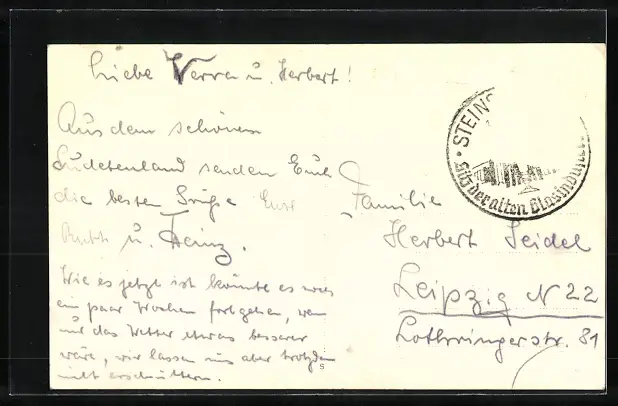 Liebe Verra u. Herbert!
Aus dem schönen
Sudetenland senden Euch
die besten Grüße Eure
Ruth u. Heinz.
Wie es jetzt ist könnte es noch
ein paar Wochen fortgehen, wenn
nur das Wetter etwas besserer
wäre, wir lassen uns aber trotzdem
nicht erschüttern.
Familie
Herbert Seidel
Leipzig N 22
Lothringerstr. 81
STEINS
Sitz der alten Glasindust